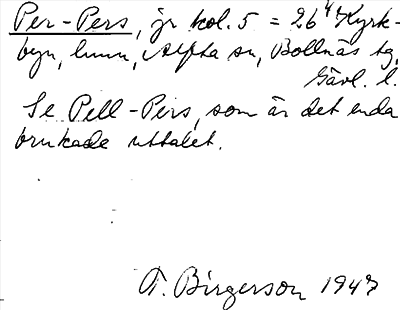 Per-Pers, jr kol. 5 = 26⁴⁷ Kyrk-
byn, hmn, Alfta sn, Bollnäs tg,
Gävl. l.
Se Pell-Pers, som är det enda
brukade uttalet.
T. Birgerson 1947